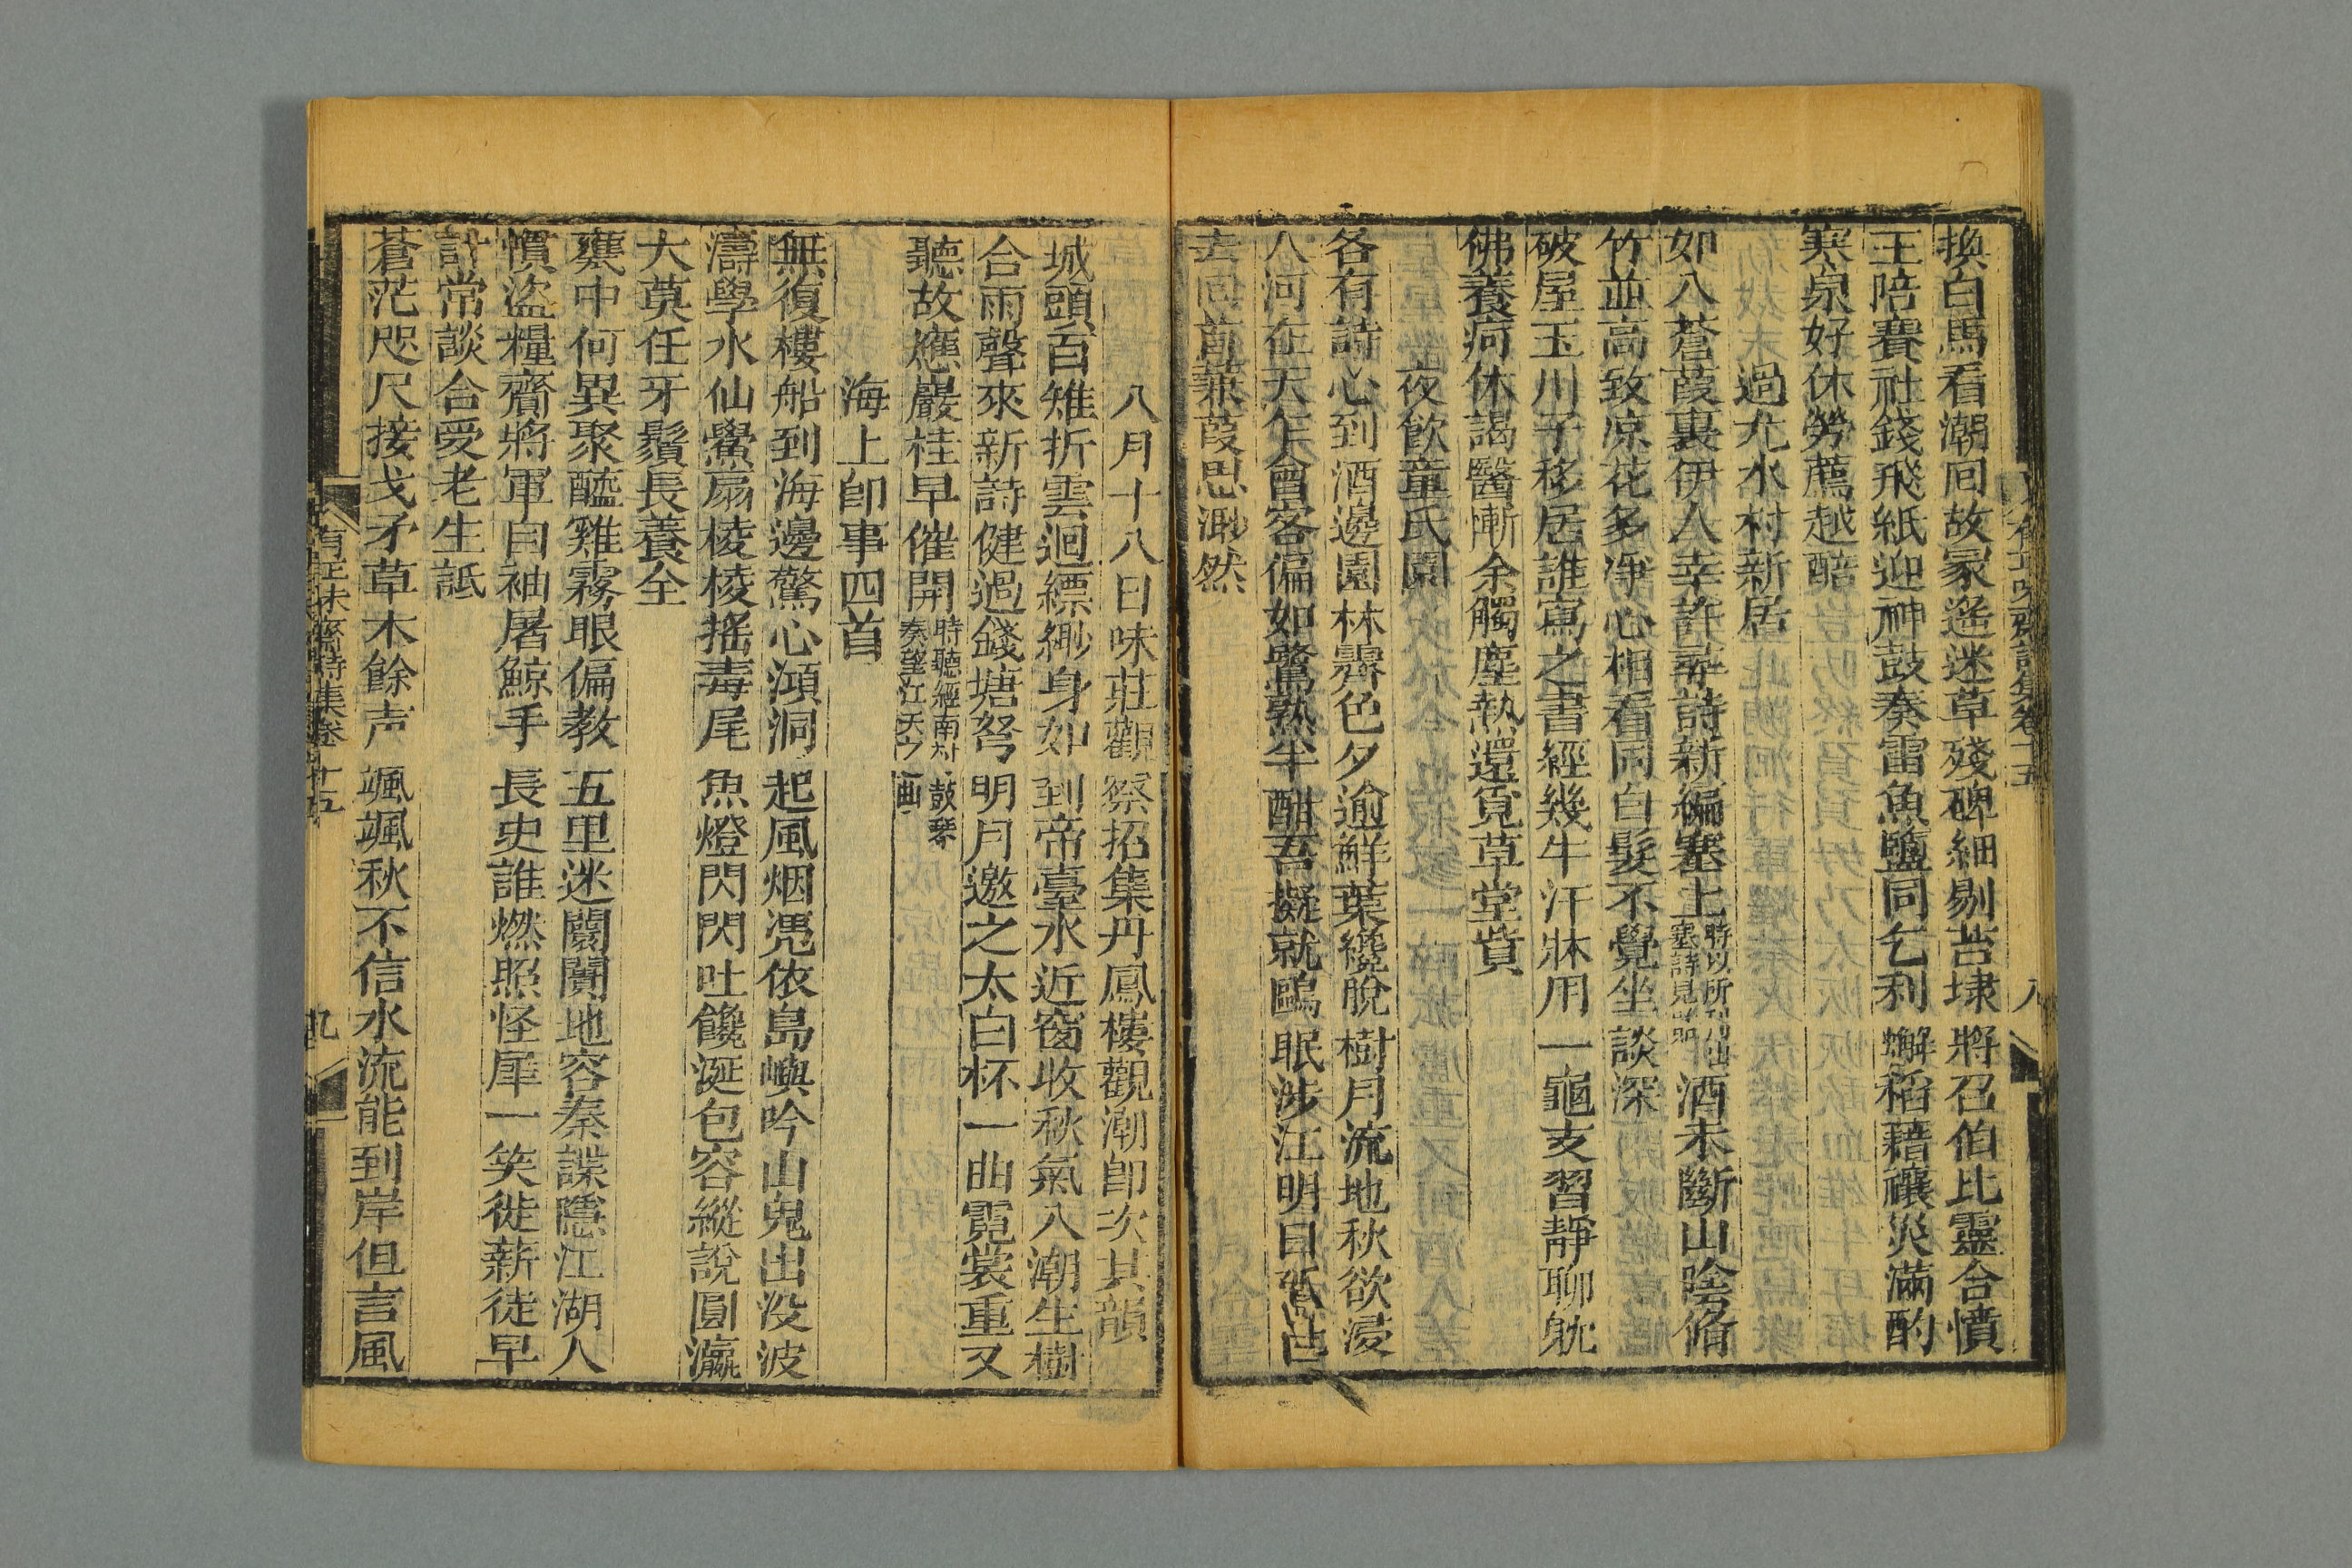 換白馬看潮回故冢遥迷草殘碑細剔苔埭將召伯比靈合憤
王陪賽社錢飛紙迎神鼓奏雷魚鹽同乞利獬稻藉禳災滿酌
寒泉好休勞薦越醅
過尤水村新居
如入蒼葭裏伊人幸許尋詩新編塞上時以所刊出塞詩見酒未斷山陰脩
竹並高致凉花多淨心相看同白髮不覺坐談深
破屋玉川子移居誰寫之書經幾牛汗牀用一龜支習靜聊躭
佛養疴休謁醫慚余觸塵熱還覓草堂貲
夜飲童氏園
各有詩心到酒邊園林霽色夕逾鮮葉纔脫樹月流地秋欲浸
人河在天乍會客偏如驚熟半酣吾擬就鷗眠涉江明日
去回首蒹葭思渺然
八月十八日味莊觀察招集丹鳳樓觀潮卽次其韻
城頭百雉折雲迴縹緲身如到帝臺水近窗收秋氣入潮生樹
合雨聲來新詩健過錢塘弩明月邀之太白杯一曲霓裳重又
聽故應巖桂早催開時聽經南鼓琴奏望江天
海上卽事四首
無復樓船到海邊驚心澒洞起風烟凴依島嶼吟山鬼出没波
濤學水仙鱟扇棱棱搖毒尾魚燈閃閃吐饞涎包容縱說圓瀛
大莫任牙鬚長養全
甕中何異聚醯雞霧眼偏教五里迷闤闠地容秦諜隱江湖人
慣盜糧齎將軍自袖屠鯨手長史誰燃照怪犀一笑徙薪徒早
計常談合受老生詆
蒼茫咫尺接戈矛草木餘声颯颯秋不信水流能到岸但言風
有正味齋詩集卷十五
九